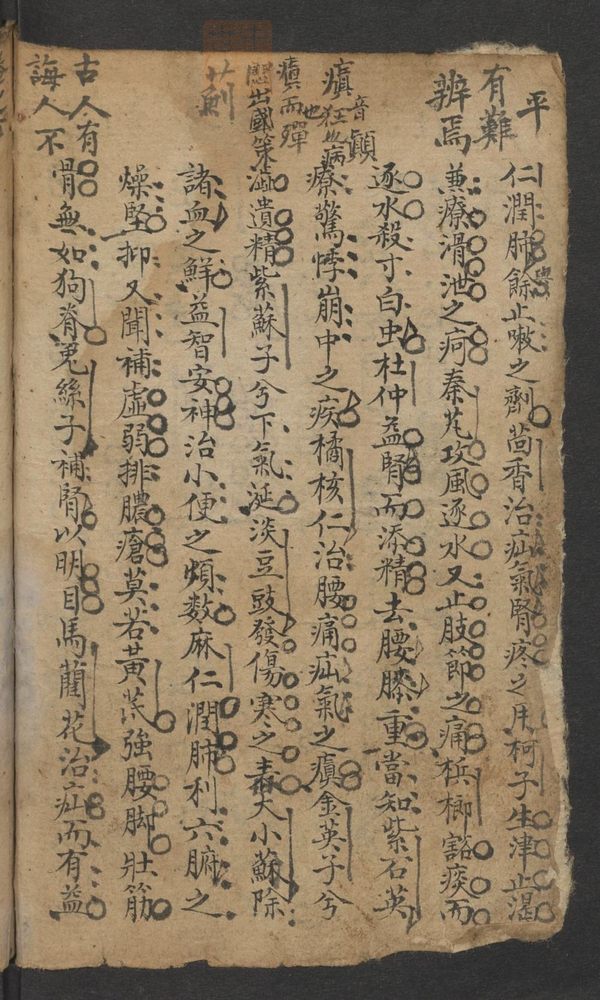 平
有難
辨焉
癲音顛
狂也病也
瘨而殫
悶出國策
薊
古人有
誨人不
仁潤肺餘止嗽之劑茴香治疝氣腎疼之用柯子生津止渴
兼療滑泄之疴秦艽攻風逐水又止肢節之痛梹榔豁痰而
逐水殺寸白虫杜仲益腎而添精去腰膝重當知紫石英
療驚悸崩中之疾橘核仁治腰痛疝氣之瘨金英子兮
澁遺精紫蘇子兮下氣涎淡豆豉發傷寒之表大小蘇除
諸血之鮮益智安神治小便之頻數麻仁潤肺利六腑之
燥堅抑又聞補虛弱排膿瘡莫若黃芪強腰脚壯筋
骨無如狗脊兔絲子補腎以明目馬藺花治疝而有益